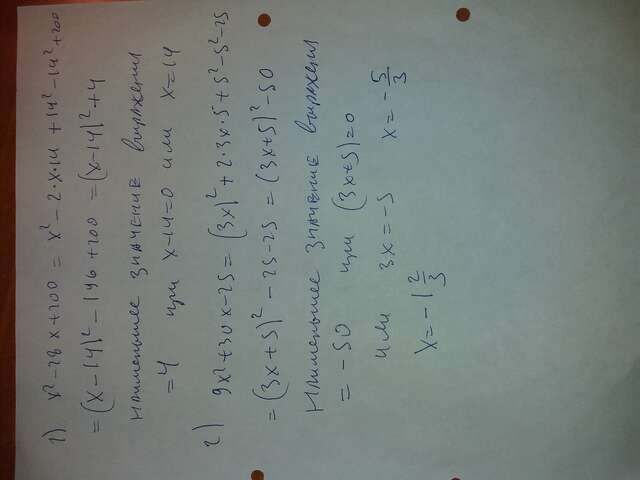 1) x²-28x+200 = x²-2·x·14 +14²-14²+200
= (x-14)²-196+200 = (x-14)²+4
наименьшее значение выражения
=4 при x-14=0 или x=14
2) 9x²+30x-25 = (3x)²+2·3x·5+5²-5²-25
= (3x+5)²-25-25 = (3x+5)²-50
наименьшее значение выражения
= -50 при (3x+5)=0
или 3x=-5 x=-5/3
x=-1 2/3